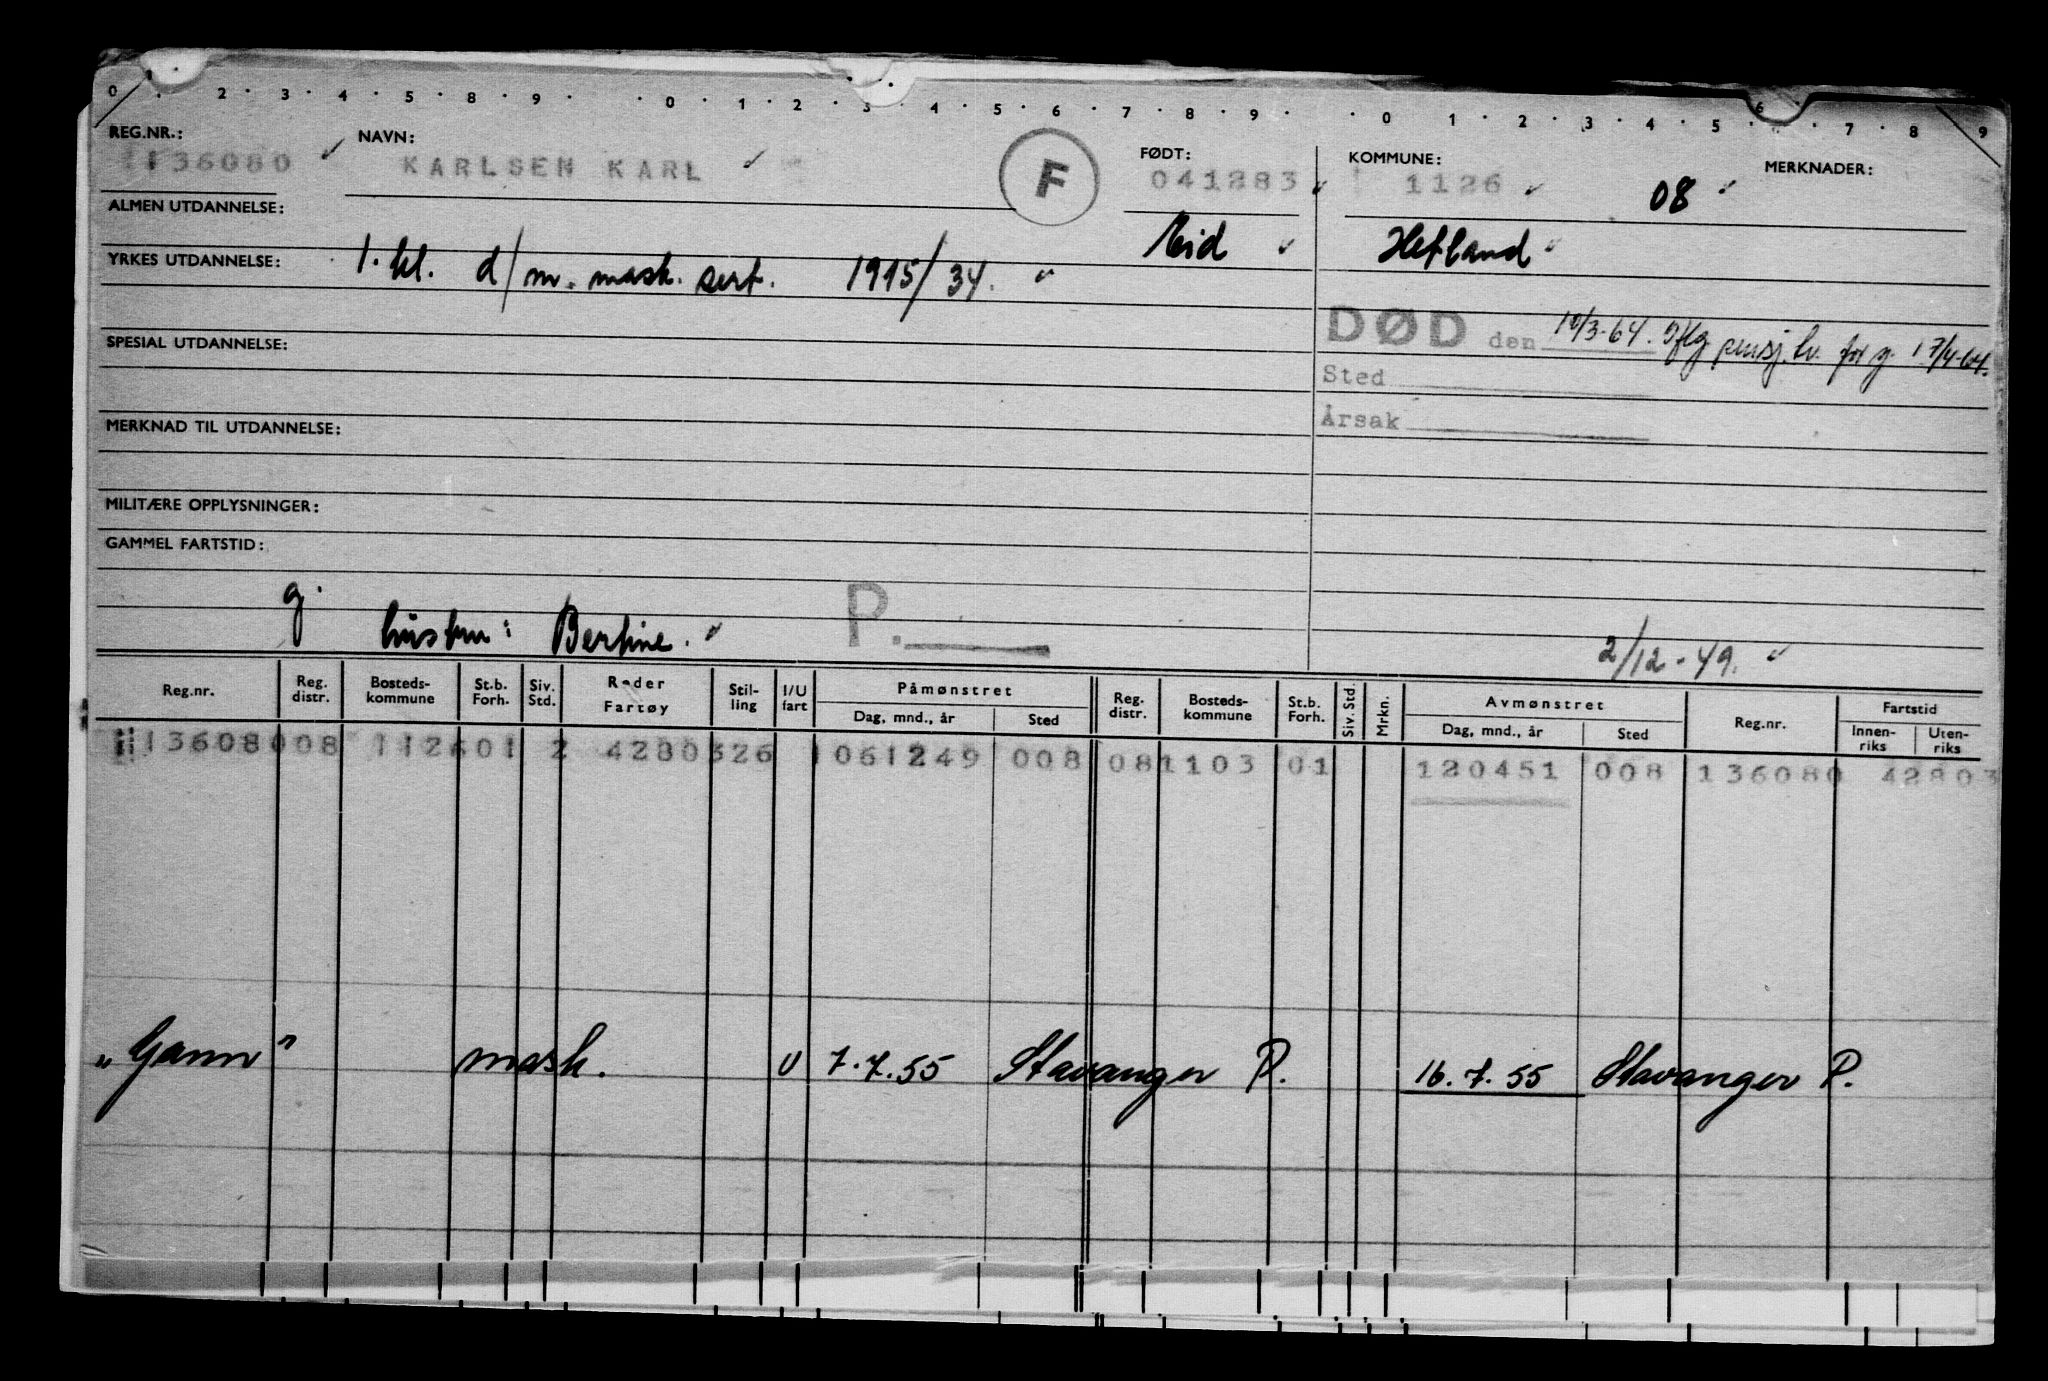 0 2 3 4 5 8 9 0 1 2 3 4 5 6 7 8 9 0 1 2 3 4 5 6 7 8 9
REG.NR.: NAVN: FØDT: KOMMUNE: MERKNADER:
136080 KARLSEN KARL F 041283 1126 08
ALMEN UTDANNELSE: Eid Hetland
YRKES UTDANNELSE: 1. kl. d/m. mask. sert. 1915/34.
DØD den 10/3-64. Iflg pensj. lv. for g. 1 7/4-64.
SPESIAL UTDANNELSE:
Sted
Årsak
MERKNAD TIL UTDANNELSE:
MILITÆRE OPPLYSNINGER:
GAMMEL FARTSTID:
g. hustru: Bertine. P. 2/12-49.
Reg.nr. Reg. distr. Bosteds-kommune St.b. Forh. Siv. Std. Reder Fartøy Stil-ling I/U fart Påmønstret Dag, mnd., år Sted Reg. distr. Bosteds-kommune St.b. Forh. Siv. Std. Mrkn. Avmønstret Dag, mnd., år Sted Reg.nr. Fartstid Innen-riks Uten-riks
136080 08 1126 01 2 4280 326 1 061249 008 08 1103 01 120451 008 136080 42803
„Gann” mask. U 7.7.55 Stavanger P. 16.7.55 Stavanger P.